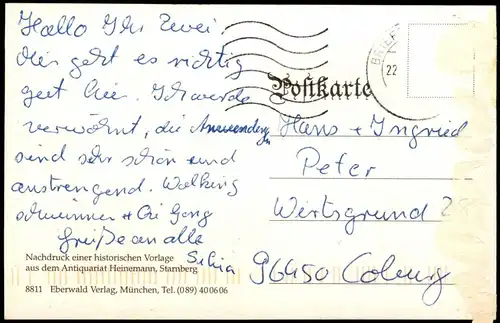 Hallo Ihr Zwei.
Mir geht es richtig
gut hier. Ich werde
verwöhnt, die Anwendungen
sind sehr schön und
anstrengend. Walking
schwimmen + Chi Gong
Grüße an alle
Silvia
Nachdruck einer historischen Vorlage
aus dem Antiquariat Heinemann, Starnberg
8811 Eberwald Verlag, München, Tel. (089) 40 06 06
BRIEF
22
Postkarte
Hans + Ingried
Peter
Wirtsgrund
96450 Coburg